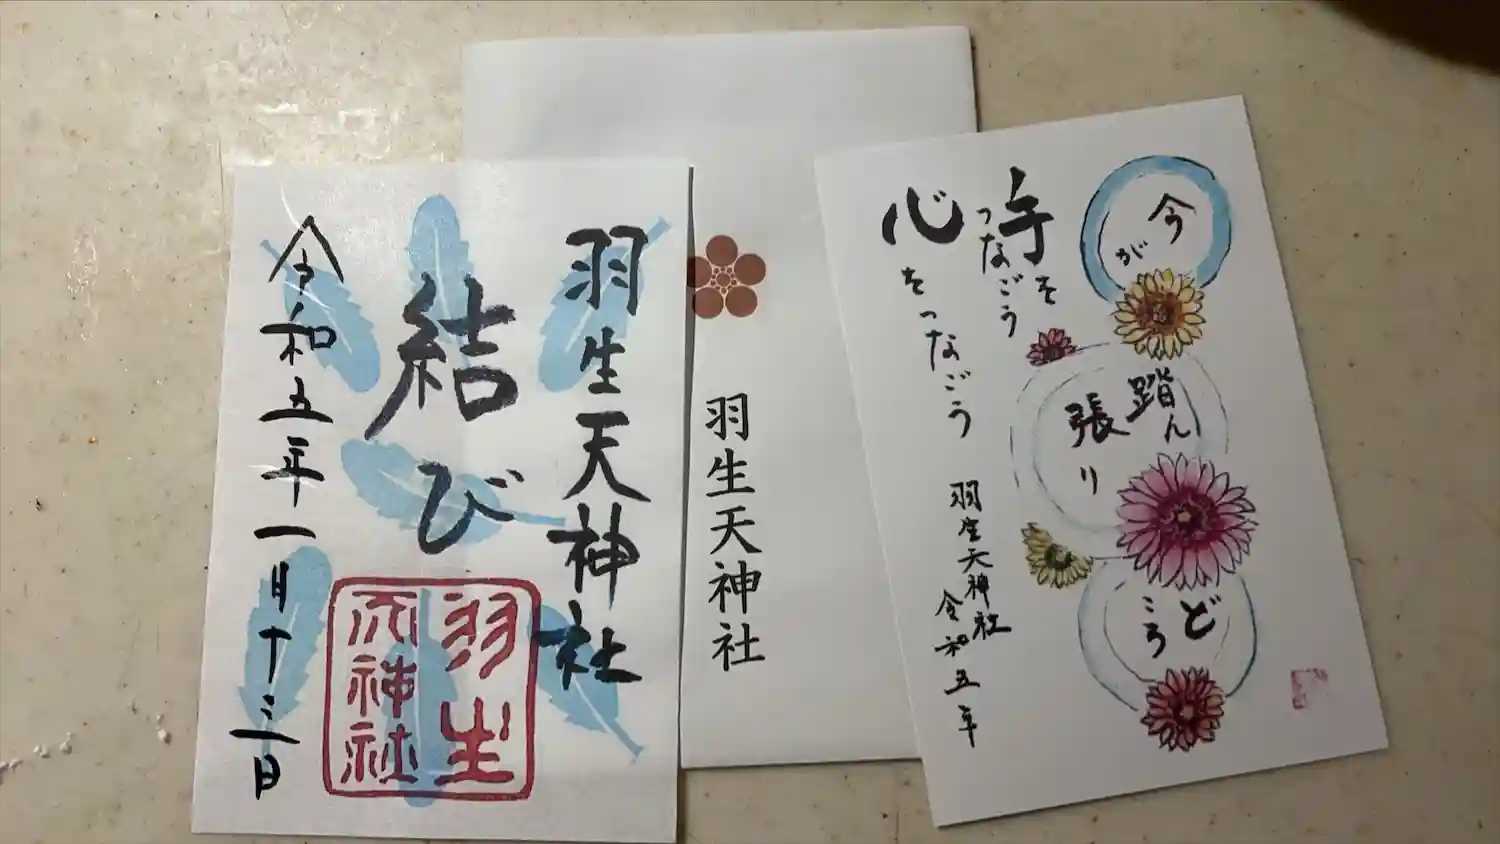 羽生天神社
結び
令和五年一月十三日
羽生
天神社
羽生天神社
今が
踏ん
張り
どころ
手をつなごう
心をつなごう
羽生天神社
令和五年